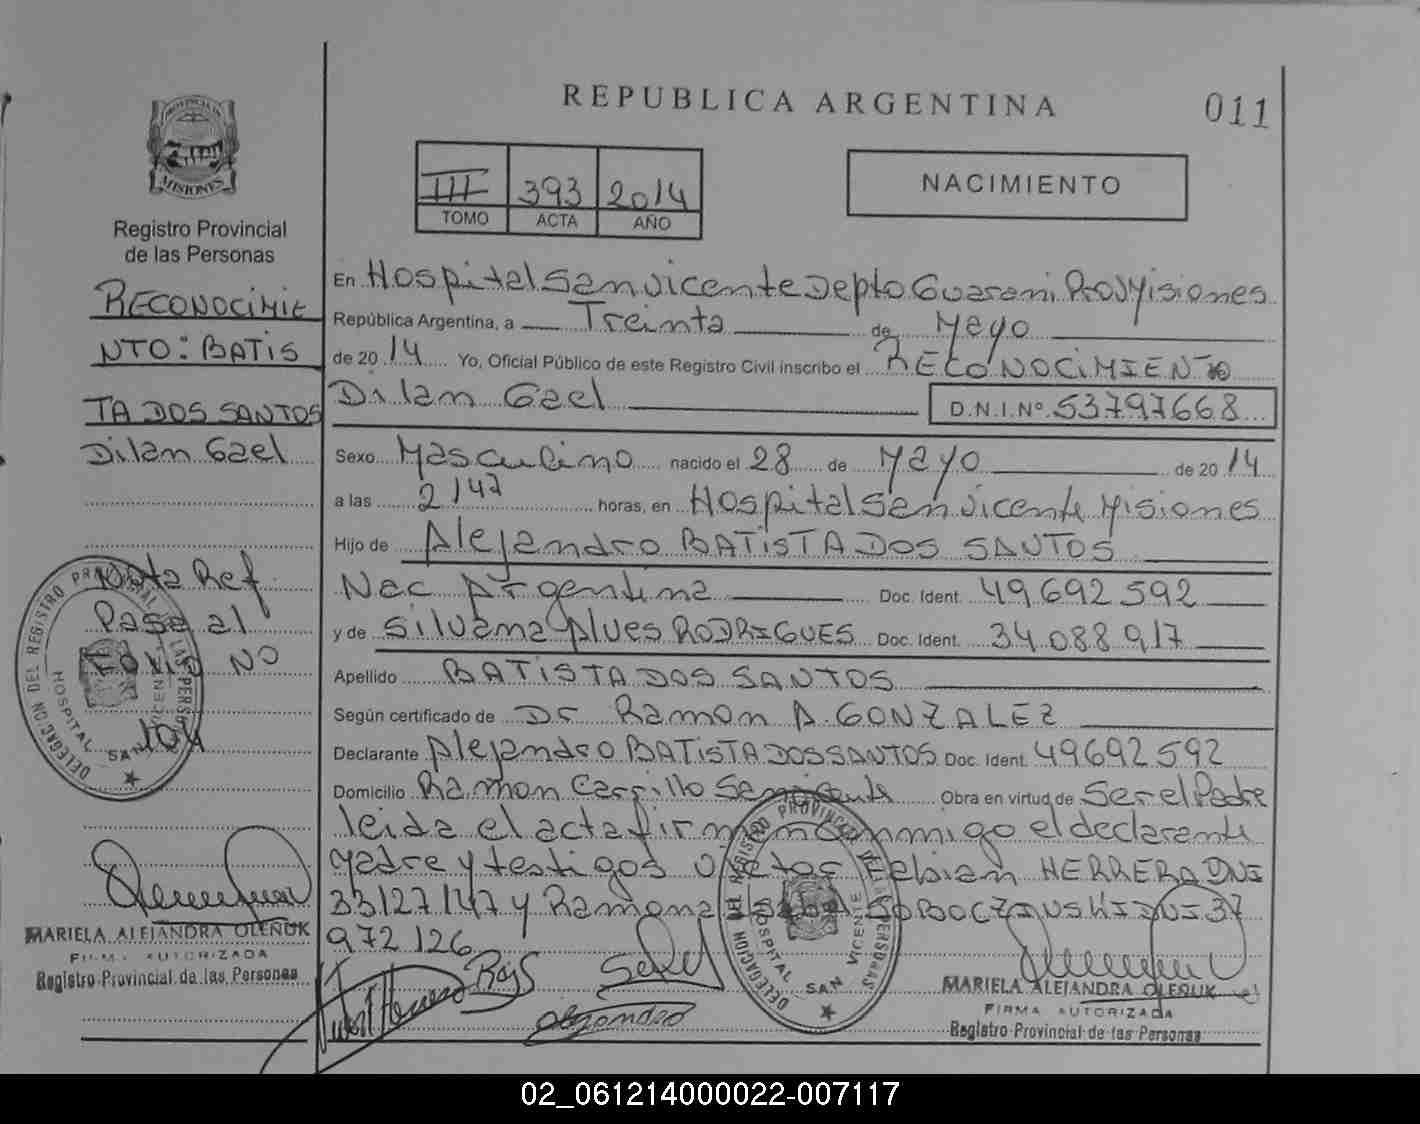 REPUBLICA ARGENTINA
011
PROVINCIA DE
MISIONES
Registro Provincial
de las Personas
III 393 2014
TOMO ACTA AÑO
NACIMIENTO
RECONOCIMIE
NTO: BATIS
TA DOS SANTOS
Dilan Gael
Nota Ref
Pasa al
Folio NO
104
DELEGACION DEL REGISTRO PROVINCIAL DE LAS PERSONAS
HOSPITAL SAN VICENTE
MARIELA ALEJANDRA OLEÑUK
FIRMA AUTORIZADA
Registro Provincial de las Personas
En Hospital San Vicente Depto Guarani Prov Misiones
República Argentina, a Treinta de Mayo
de 2014 Yo, Oficial Público de este Registro Civil inscribo el RECONOCIMIENTO
Dilan Gael D.N.I.Nº 53797668
Sexo Masculino nacido el 28 de Mayo de 2014
a las 2147 horas, en Hospital San Vicente Misiones
Hijo de Alejandro BATISTA DOS SANTOS
Nac Argentina Doc. Ident. 49692592
y de Silvana Alves RODRIGUES Doc. Ident. 34088917
Apellido BATISTA DOS SANTOS
Según certificado de Dr Ramon A. GONZALEZ
Declarante Alejandro BATISTA DOS SANTOS Doc. Ident. 49692592
Domicilio Ramon Carrillo San Vicente Obra en virtud de Ser el Padre
leida el acta firman conmigo el declarante
Madre y testigos Nestor Fabian HERRERA DNI
33127147 y Ramona SOBOCZINSKI DNI 37
972126
Alejandro
DELEGACION DEL REGISTRO PROVINCIAL DE LAS PERSONAS
HOSPITAL SAN VICENTE
MARIELA ALEJANDRA OLEÑUK
FIRMA AUTORIZADA
Registro Provincial de las Personas
02_061214000022-007117